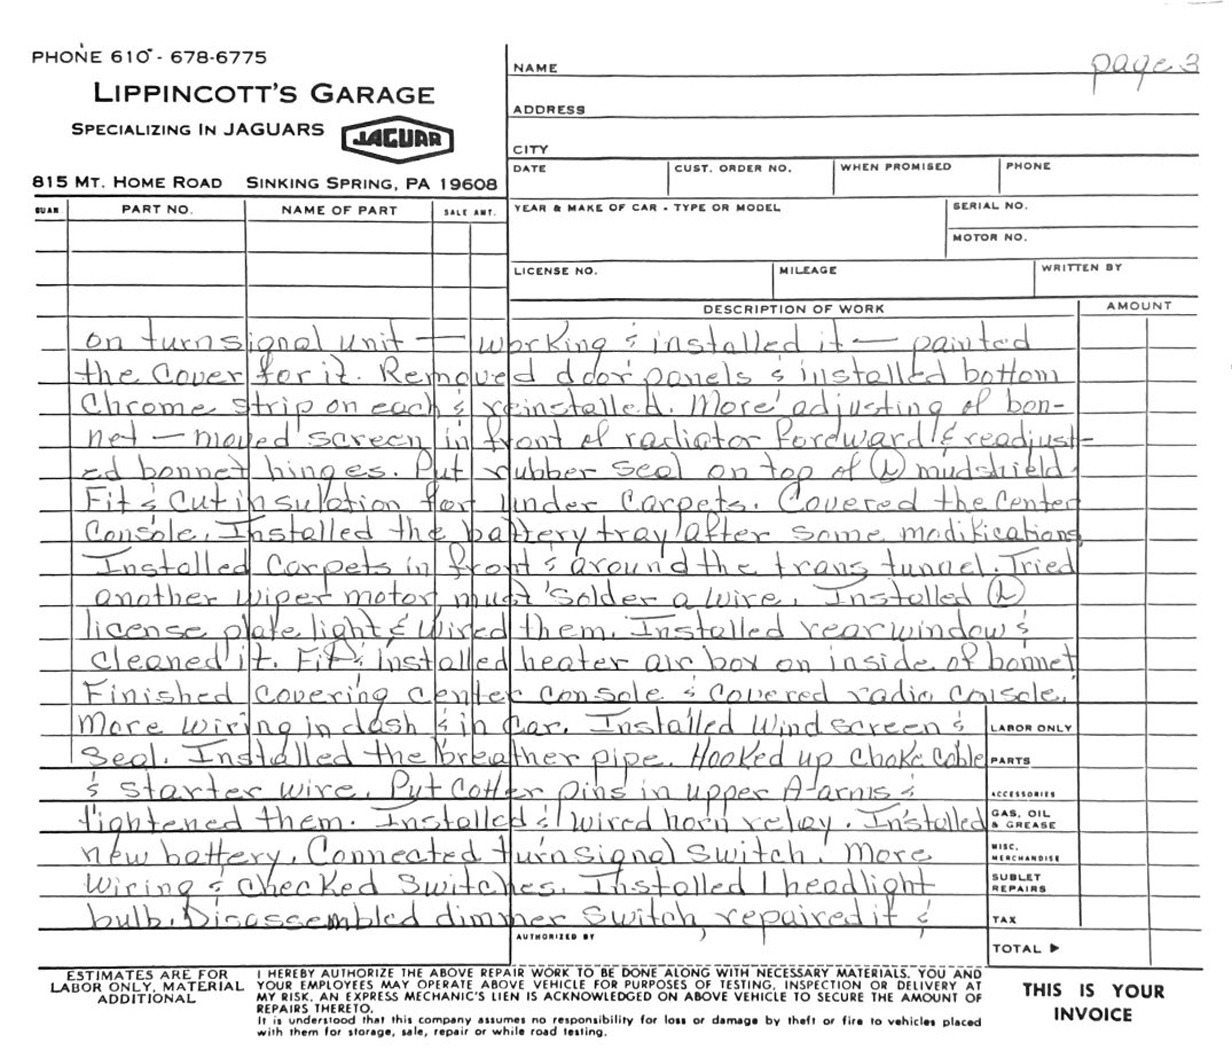 page 3
PHONE 610 - 678-6775
LIPPINCOTT'S GARAGE
SPECIALIZING IN JAGUARS
JAGUAR
815 MT. HOME ROAD SINKING SPRING, PA 19608
NAME
ADDRESS
CITY
DATE CUST. ORDER NO. WHEN PROMISED PHONE
QUAN PART NO. NAME OF PART SALE AMT.
YEAR & MAKE OF CAR - TYPE OR MODEL SERIAL NO.
MOTOR NO.
LICENSE NO. MILEAGE WRITTEN BY
DESCRIPTION OF WORK AMOUNT
on turnsignal unit — working & installed it — painted
the Cover for it. Removed door panels & installed bottom
Chrome strip on each & reinstalled. More adjusting of bon-
net — moved screen in front of radiator foreward & readjust-
ed bonnet hinges. Put rubber seal on top of (L) mudshield.
Fit & Cut insulation for under Carpets. Covered the Center
Console. Installed the battery tray after some modifications
Installed Carpets in front & around the trans tunnel. Tried
another wiper motor must solder a wire. Installed (2)
license plate light & wired them. Installed rear window &
Cleaned it. Fit & installed heater air box on inside of bonnet
Finished covering center console & covered radio console.
More wiring in dash & in Car. Installed Windscreen &
Seal. Installed the breather pipe. Hooked up Choke Cable
& starter wire. Put Cotter pins in upper A-arms &
tightened them. Installed & wired horn relay. Installed
new battery. Connected turnsignal switch. More
wiring & checked Switches. Installed 1 headlight
bulb. Disassembled dimmer Switch, repaired it &
LABOR ONLY
PARTS
ACCESSORIES
GAS, OIL
& GREASE
MISC.
MERCHANDISE
SUBLET
REPAIRS
TAX
TOTAL ▶
AUTHORIZED BY
ESTIMATES ARE FOR
LABOR ONLY, MATERIAL
ADDITIONAL
I HEREBY AUTHORIZE THE ABOVE REPAIR WORK TO BE DONE ALONG WITH NECESSARY MATERIALS. YOU AND
YOUR EMPLOYEES MAY OPERATE ABOVE VEHICLE FOR PURPOSES OF TESTING, INSPECTION OR DELIVERY AT
MY RISK. AN EXPRESS MECHANIC'S LIEN IS ACKNOWLEDGED ON ABOVE VEHICLE TO SECURE THE AMOUNT OF
REPAIRS THERETO.
It is understood that this company assumes no responsibility for loss or damage by theft or fire to vehicles placed
with them for storage, sale, repair or while road testing.
THIS IS YOUR
INVOICE